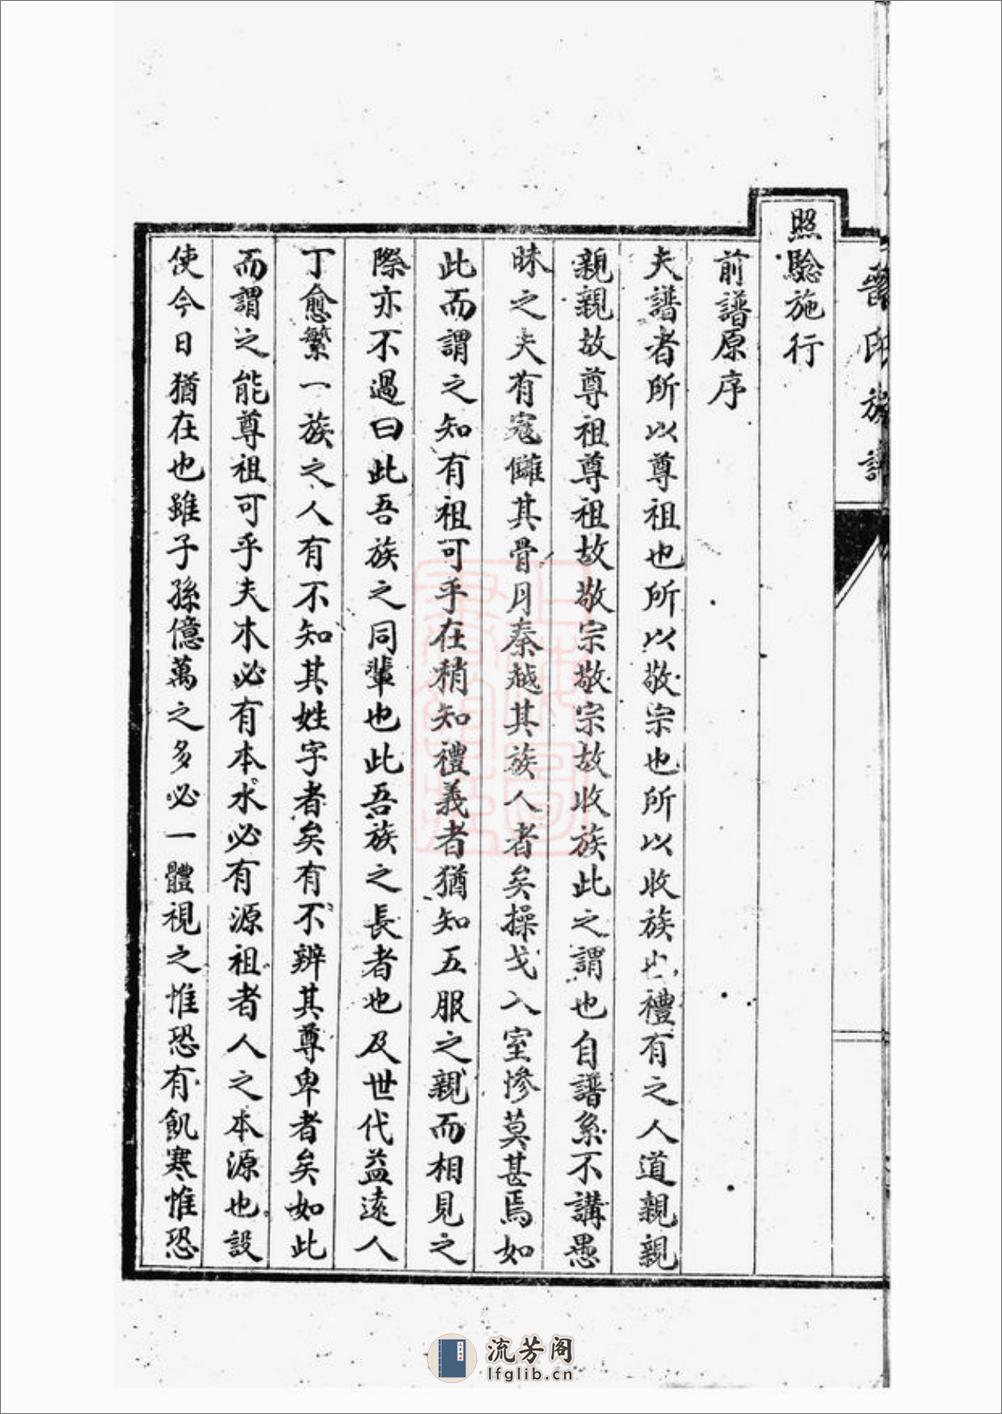 氏族譜
照驗施行
前譜原序
夫譜者所以尊祖也所以敬宗也所以收族也禮有之人道親親
親親故尊祖尊祖故敬宗敬宗故收族此之謂也自譜系不講愚
昧之夫有寇讎其骨月秦越其族人者矣操戈入室慘莫甚焉如
此而謂之知有祖可乎在稍知禮義者猶知五服之親而相見之
際亦不過曰此吾族之同輩也此吾族之長者也及世代益遠人
丁愈繁一族之人有不知其姓字者矣有不辨其尊卑者矣如此
而謂之能尊祖可乎夫木必有本水必有源祖者人之本源也設
使今日猶在也雖子孫億萬之多必一體視之惟恐有飢寒惟恐
流芳阁
lfglib.cn